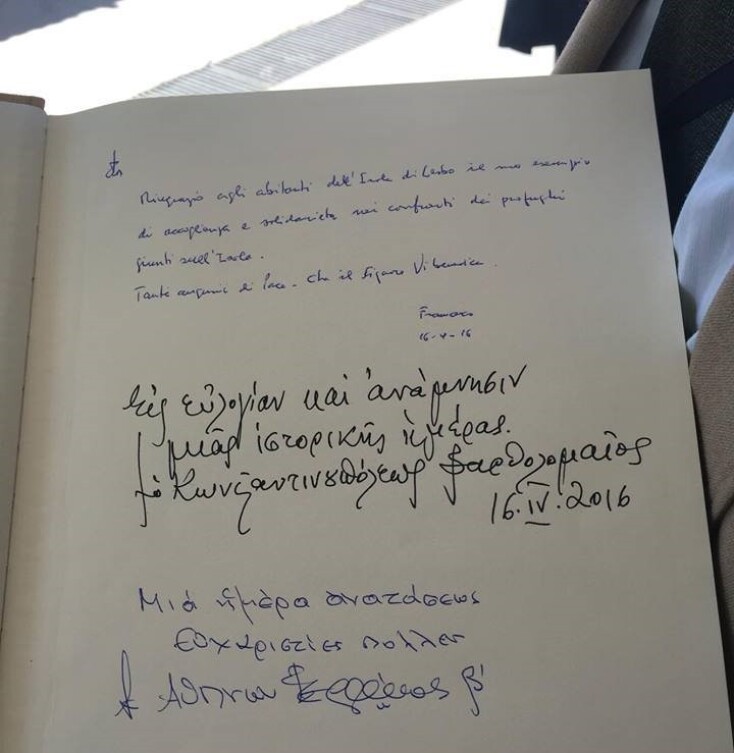 Ringrazio agli abitanti dell'Isola di Lesbo il suo esempio
di accoglienza e solidarietà nei confronti dei profughi
giunti sull'Isola.
Tanti auguri di Pace. Che il Signore Vi benedica.
Francesco
16-4-16
Εἰς εὐλογίαν καί ἀνάμνησιν
μιᾶς ἱστορικῆς ἡμέρας.
ὁ Κωνσταντινουπόλεως Βαρθολομαῖος
16.IV.2016
Μιά ἡμέρα ἀνατάσεως
Εὐχαριστίες πολλές
Ἀθηνῶν Ἱερώνυμος β'